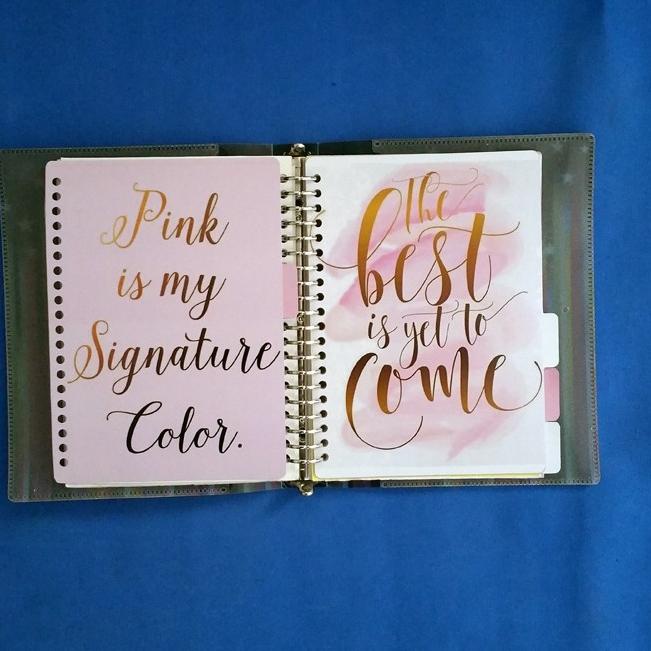 Pink
is my
Signature
Color.
The
best
is yet to
Come